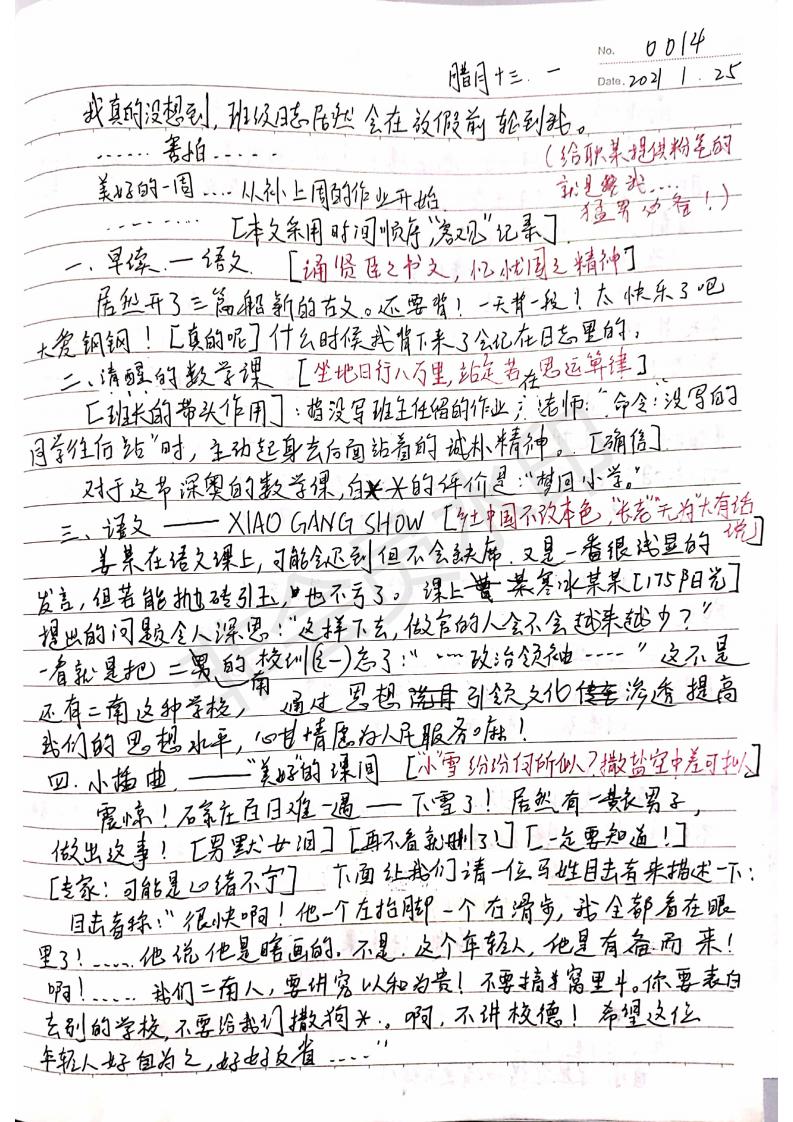 No. 0014
腊月十三. 一 Date. 2021 1. 25
我真的没想到, 班级日志居然会在放假前轮到我。
……害怕……
(给耿某提供粉色的
就是我....
猛男必备!)
美好的一周....从补上周的作业开始
.........[本文采用时间顺序,“客观”纪录]
一、早读. 一语文 [诵贤臣之书文, 忆忧国之精神]
居然开了三篇船新的古文。还要背! 一天背一段! 太快乐了吧
大爱钢钢! [真的呢] 什么时候我背下来了会记在日志里的.
二、清醒的数学课 [坐地日行八万里, 站定若在思运算律]
[班长的带头作用]: 指没写班主任留的作业, 老师:“命令: 没写的
同学往后站”时, 主动起身去后面站着的诚朴精神。[确信]
对于这节深奥的数学课, 白**的评价是:“梦回小学。”
三、语文 —— XIAO GANG SHOW [乡土中国不改本色,“长老”“无为”大有话说]
姜某在语文课上, 可能会迟到但不会缺席. 又是一番很浅显的
发言, 但若能抛砖引玉, 也不亏了。课上 某寒冰某某[175阳光]
提出的问题令人深思:“这样下去, 做官的人会不会越来越少?”
一看就是把二南的校训(之一)忘了:“....政治领袖....” 这不是
还有二南这种学校, 通过思想引领, 文化渗透提高
我们的思想水平, 心甘情愿为人民服务嘛!
四. 小插曲. ——“美好”的课间 [“小”雪纷纷何所似? 撒盐空中差可拟]
震惊! 石家庄百日难一遇 —— 下雪了! 居然有一裴衣男子,
做出这事! [男默女泪] [再不看就删了!] [一定要知道!]
[专家: 可能是心绪不宁] 下面让我们请一位马姓目击者来描述一下:
目击者称:“很快啊! 他一个左抬脚一个右滑步, 我全部看在眼
里了! .....他说他是瞎画的. 不是. 这个年轻人, 他是有备而来!
啊! ..... 我们二南人, 要讲究以和为贵! 不要搞窝里斗。你要表白
去别的学校, 不要给我们撒狗*. 啊, 不讲校德! 希望这位
年轻人好自为之, 好好反省....”